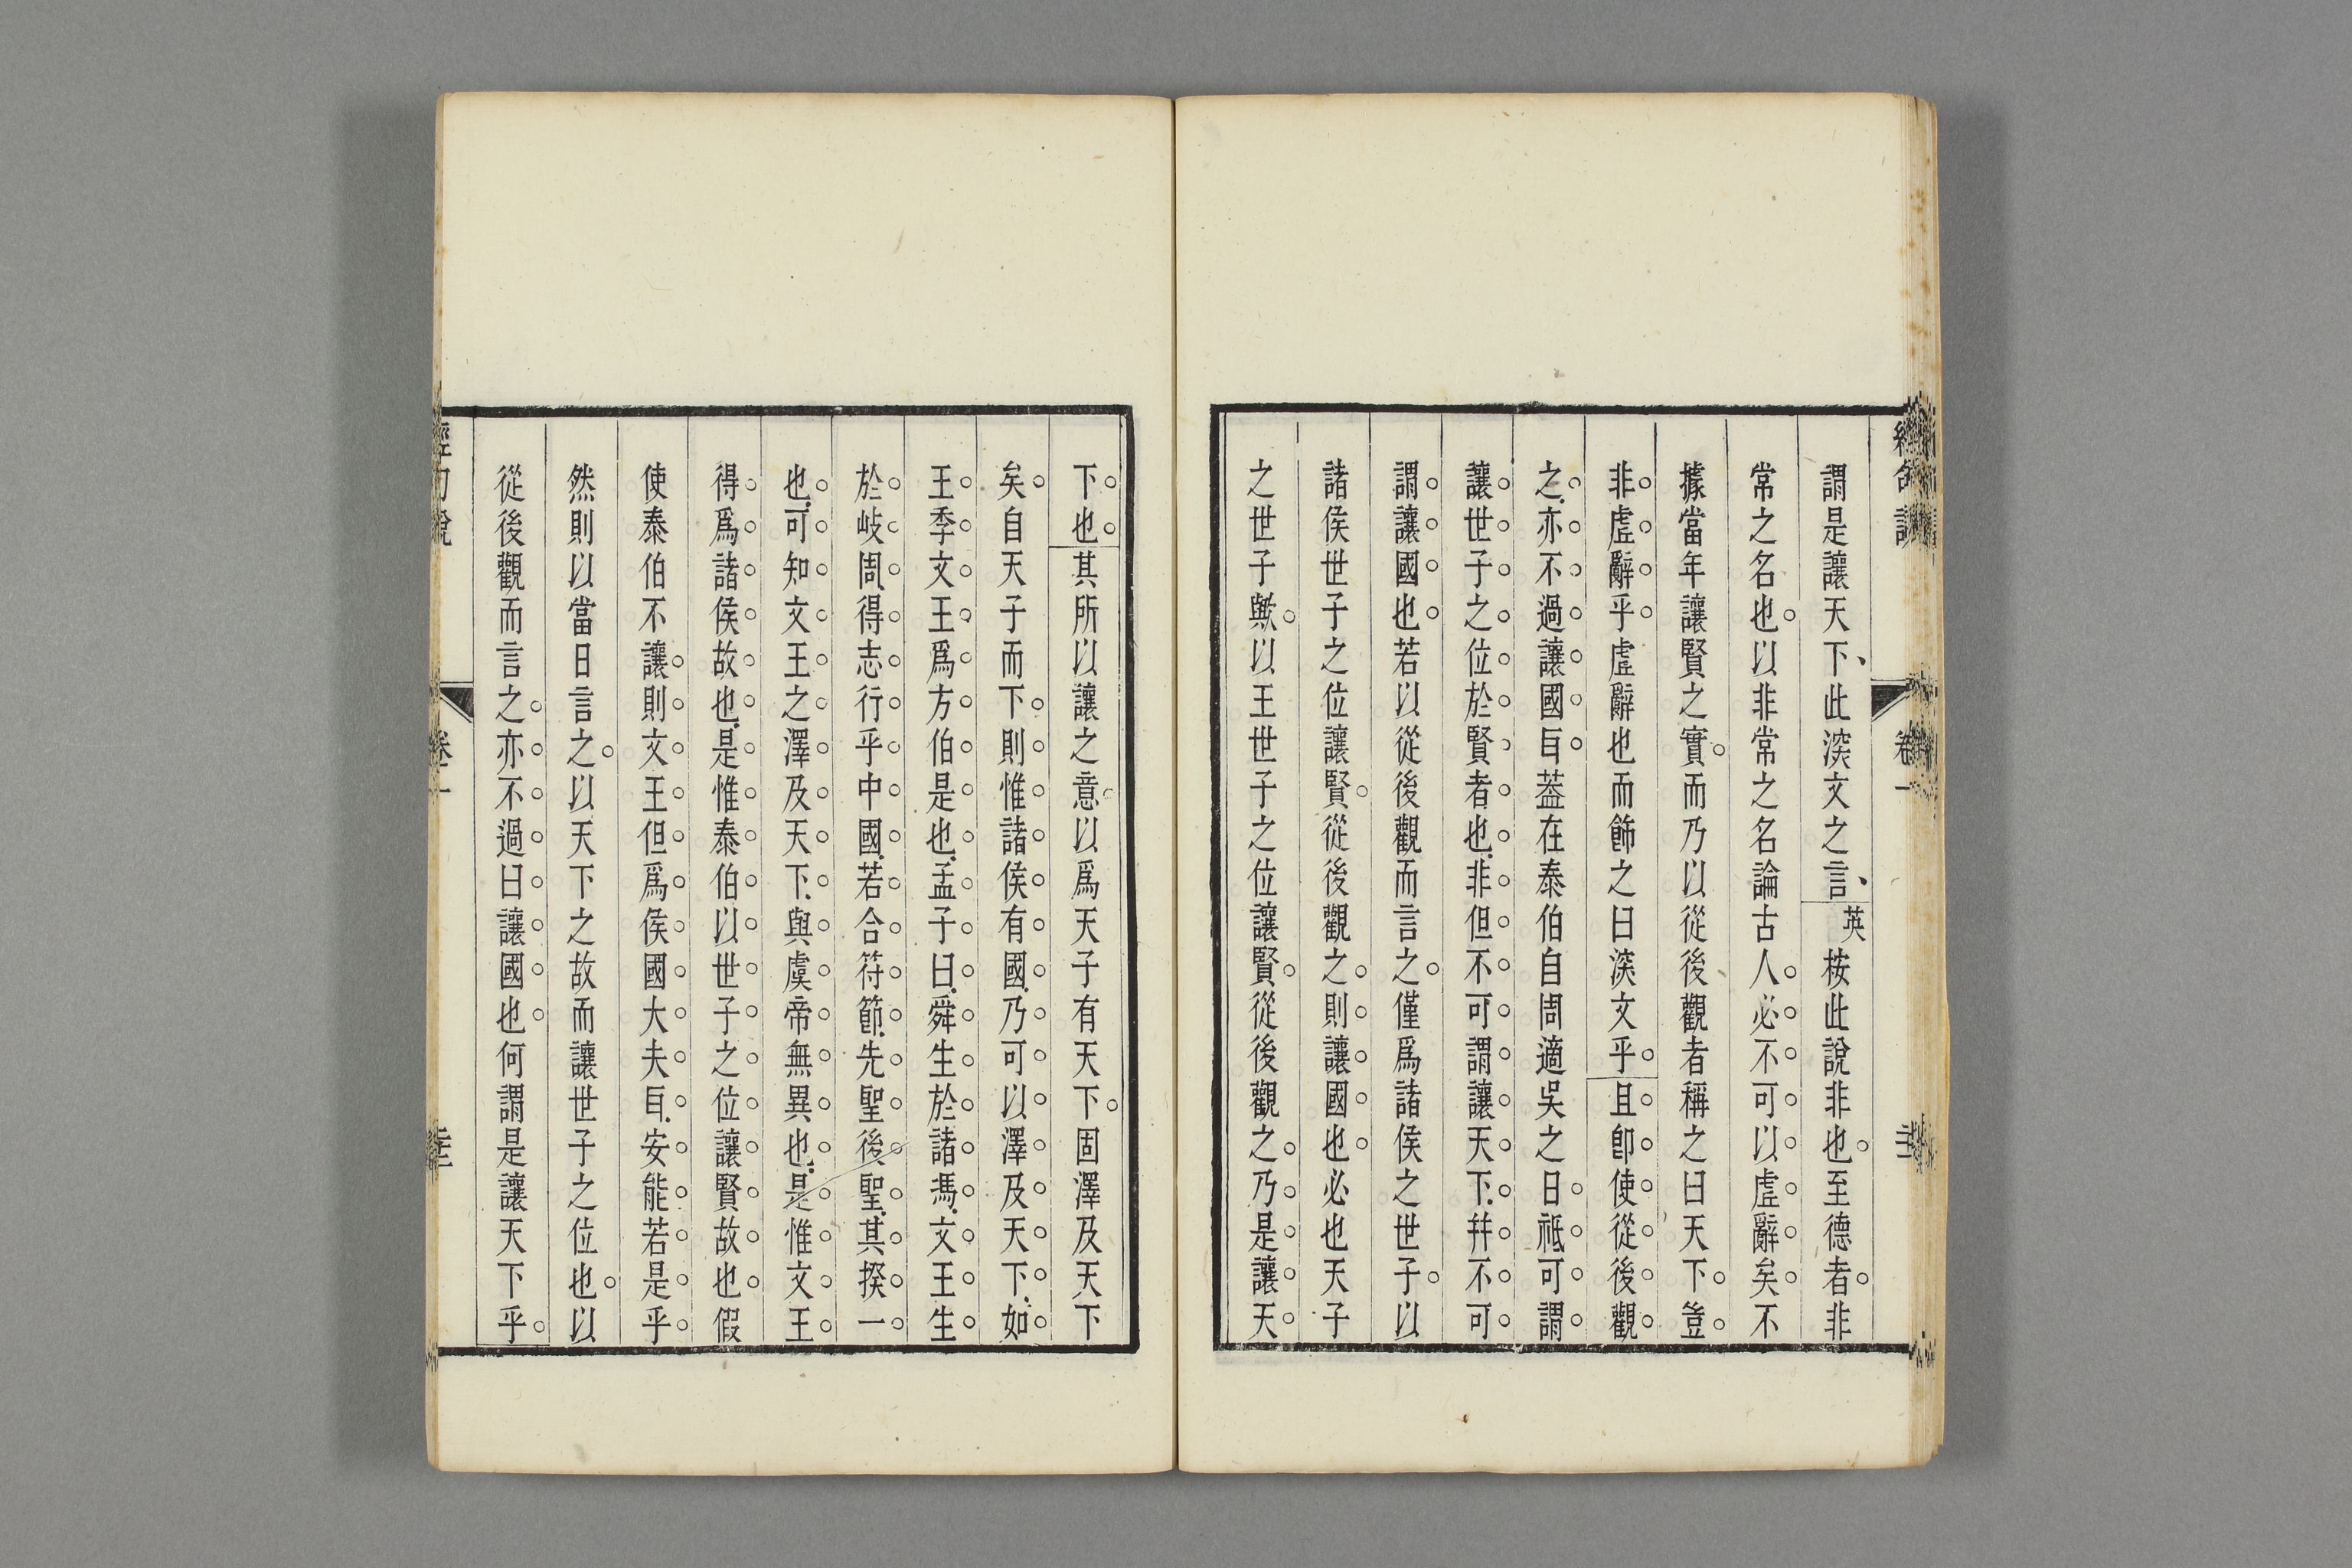 謂是讓天下、此深文之言、英按此說非也。至德者。非
常之名也。以非常之名論古人。必不可以虛辭矣。不
據當年讓賢之實。而乃以從後觀者稱之曰天下。豈
非虛辭乎。虛辭也而飾之曰深文乎。且卽使從後觀
之。亦不過讓國㠯。葢在泰伯自周適吳之日。祗可謂
讓世子之位於賢者也。非但不可謂讓天下。幷不可
謂讓國也。若以從後觀而言之。僅爲諸侯之世子。以
諸侯世子之位讓賢。從後觀之。則讓國也。必也天子
之世子歟。以王世子之位讓賢。從後觀之。乃是讓天
下也。其所以讓之意。以爲天子有天下。固澤及天下
矣。自天子而下。則惟諸侯有國。乃可以澤及天下。如
王季文王爲方伯是也。孟子曰。舜生於諸馮。文王生
於岐周。得志行乎中國。若合符節。先聖後聖。其揆一
也。可知文王之澤及天下。與虞帝無異也。是惟文王
得爲諸侯故也。是惟泰伯以世子之位讓賢故也。假
使泰伯不讓。則文王但爲侯國大夫㠯。安能若是乎。
然則以當日言之。以天下之故而讓世子之位也。以
從後觀而言之。亦不過曰讓國也。何謂是讓天下乎。
卷一